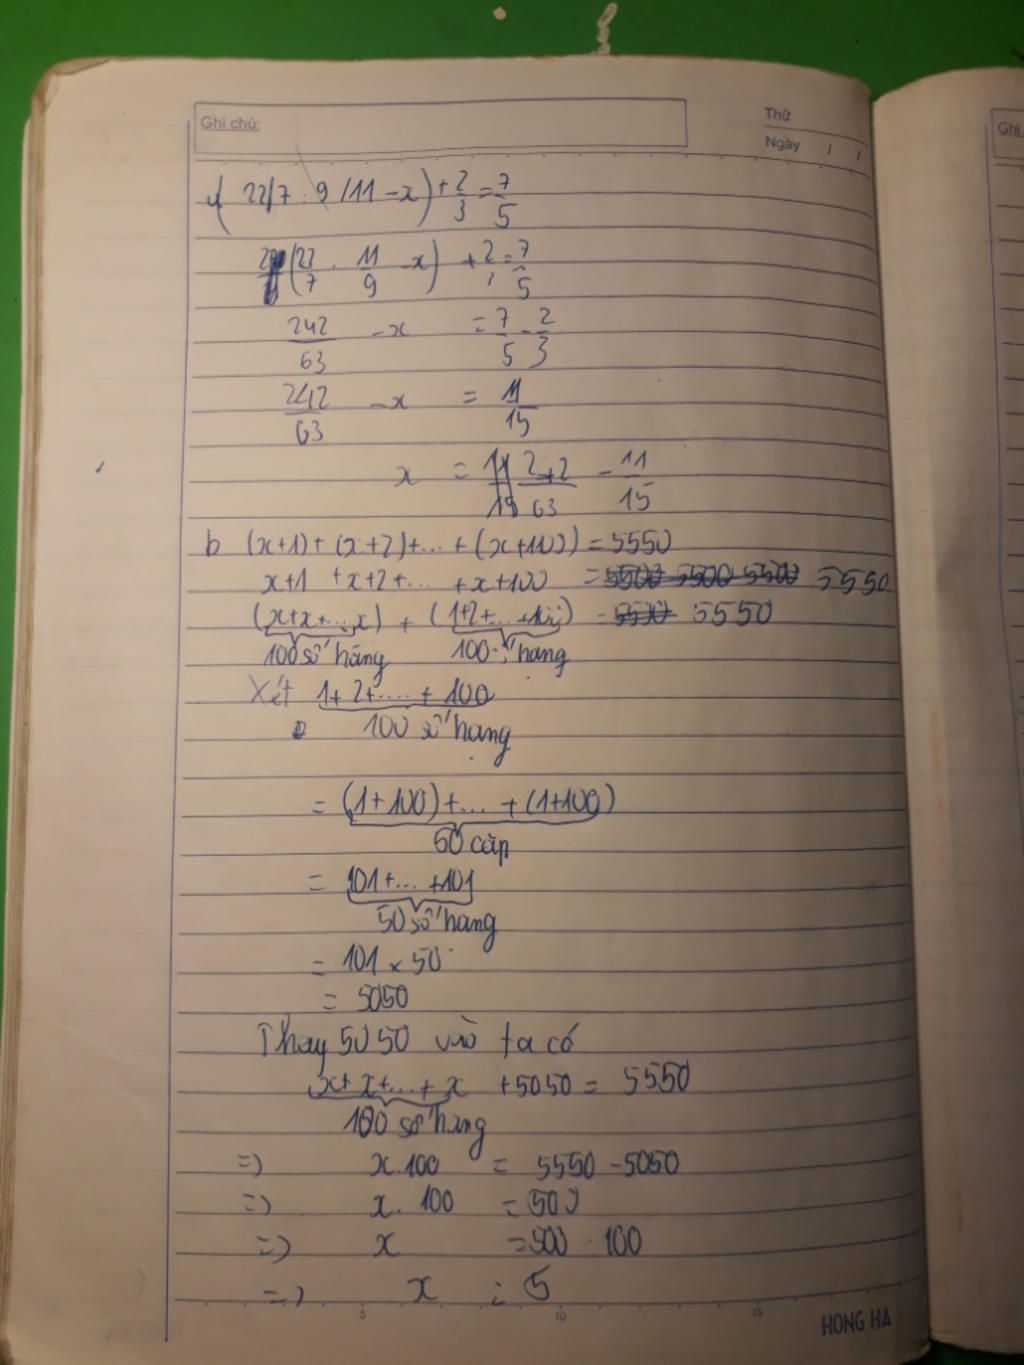 Ghi chú:
Thứ
Ngày / /
Ghi
( 22/7 : 9/11 - x) + 2/3 = 7/5
(22/7 . 11/9 - x) + 2/ = 7/5
242/63 - x = 7/5 - 2/3
242/63 - x = 11/15
x = 242/63 - 11/15
b (x+1) + (x+2) + ... + (x+100) = 5550
x+1 + x+2 + ... + x+100 = 5500 5500 5500 5550
(x+x+...x) + (1+2+...+100) = 5550
100 số hãng 100 số hang
Xét 1+2+.....+ 100
100 số hang
= (1+100)+... + (1+100)
50 cặp
= 101+... +101
50 số hang
= 101 x 50
= 5050
Thay 5050 vào ta có
x+ x+...+ x + 5050 = 5550
100 số hang
=) x.100 = 5550 - 5050
=) x. 100 = 500
=) x = 500 : 100
=) x = 5
5 10 15
HONG HA